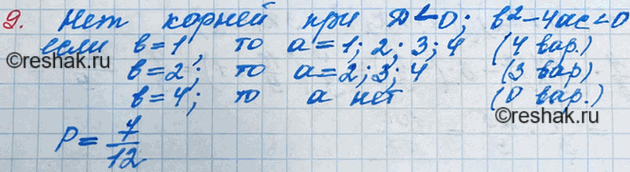 9. Нет корней при D<0; b²-4ac<0
если b=1, то a=1; 2; 3; 4 (4 вар.)
b=2; то a=2; 3; 4 (3 вар.)
b=4; то a нет (0 вар.)
P=7/12